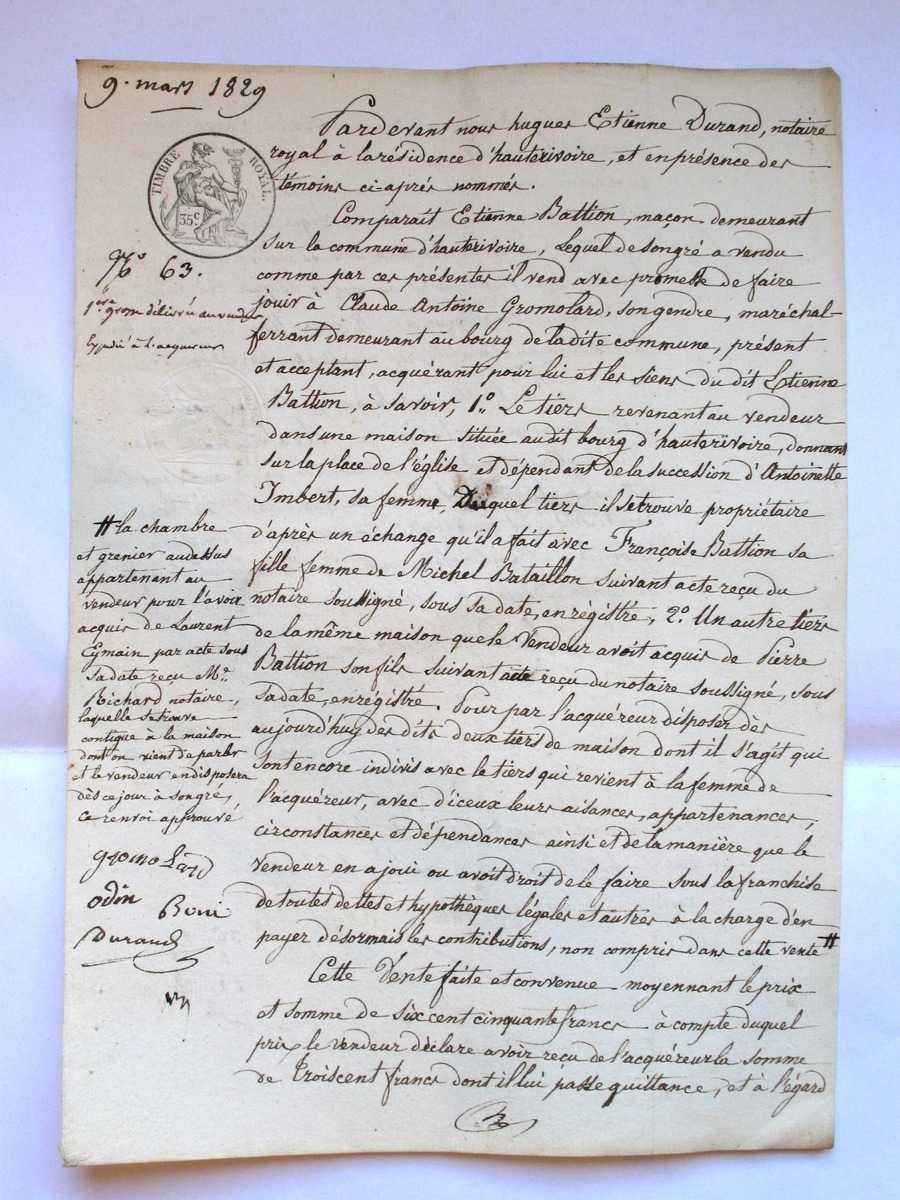 9. mars 1829
TIMBRE ROYAL.
35c
No 63.
1ère grosse délivrée au vendeur
Expédié à l'acquéreur
Pardevant nous hugues Etienne Durand, notaire
royal à la résidence d'hauterivoire, et en présence des
témoins ci-après nommés.
Comparait Etienne Battion, maçon demeurant
sur la commune d'hauterivoire, Lequel de son gré a vendu
comme par ces présentes il vend avec promesse de faire
jouir à Claude Antoine Gromolard, son gendre, maréchal-
ferrant demeurant au bourg de la dite commune, présent
et acceptant, acquérant pour lui et les siens du dit Etienne
Battion, à savoir, 1.o Le tiers revenant au vendeur
dans une maison située au dit bourg d'hauterivoire, donnant
sur la place de l'église et dépendant de la succession d'Antoinette
Imbert, sa femme, Duquel tiers il se trouve propriétaire
d'après un échange qu'il a fait avec Françoise Battion sa
fille femme de Michel Bataillon suivant acte reçu du
notaire soussigné, sous sa date, enrégistré, 2.o Un autre tiers
de la même maison que le Vendeur avoit acquis de Pierre
Battion son fils suivant acte reçu du notaire soussigné, sous
sa date, enrégistré. Pour par l'acquéreur disposer dès
aujourd'huy des dits deux tiers de maison dont il s'agit qui
sont encore indivis avec le tiers qui revient à la femme de
l'acquéreur, avec d'iceux leurs aisances, appartenances,
circonstances et dépendances ainsi et de la manière que le
vendeur en a joui ou avoit droit de le faire sous la franchise
de toutes dettes et hypothèques légales et autres à la charge d'en
payer désormais les contributions, non compris dans cette vente #
Cette Vente faite et convenue moyennant le prix
et somme de six cent cinquante francs à compte duquel
prix le vendeur déclare avoir reçu de l'acquéreur la somme
de Trois cent francs dont il lui passe quittance, et à l'égard
# la chambre
et grenier au dessus
appartenant au
vendeur pour l'avoir
acquis de Laurent
Eymain par acte sous
sa date reçu Me.
Boichard notaire,
laquelle se trouve
contigue à la maison
dont on vient de parler
et le vendeur en disposera
dès ce jour à son gré,
ce renvoi approuvé
gromolard
odin
Durand